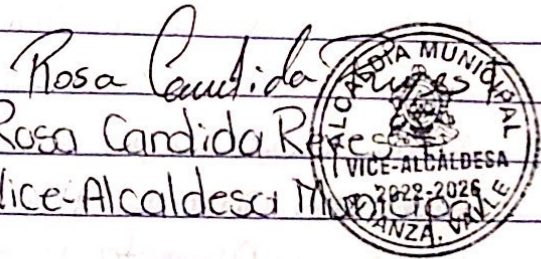 Rosa Candida Reyes
Rosa Candida Reyes
Vice-Alcaldesa Municipal
ALCALDIA MUNICIPAL
VICE-ALCALDESA
2022-2026
VALLE